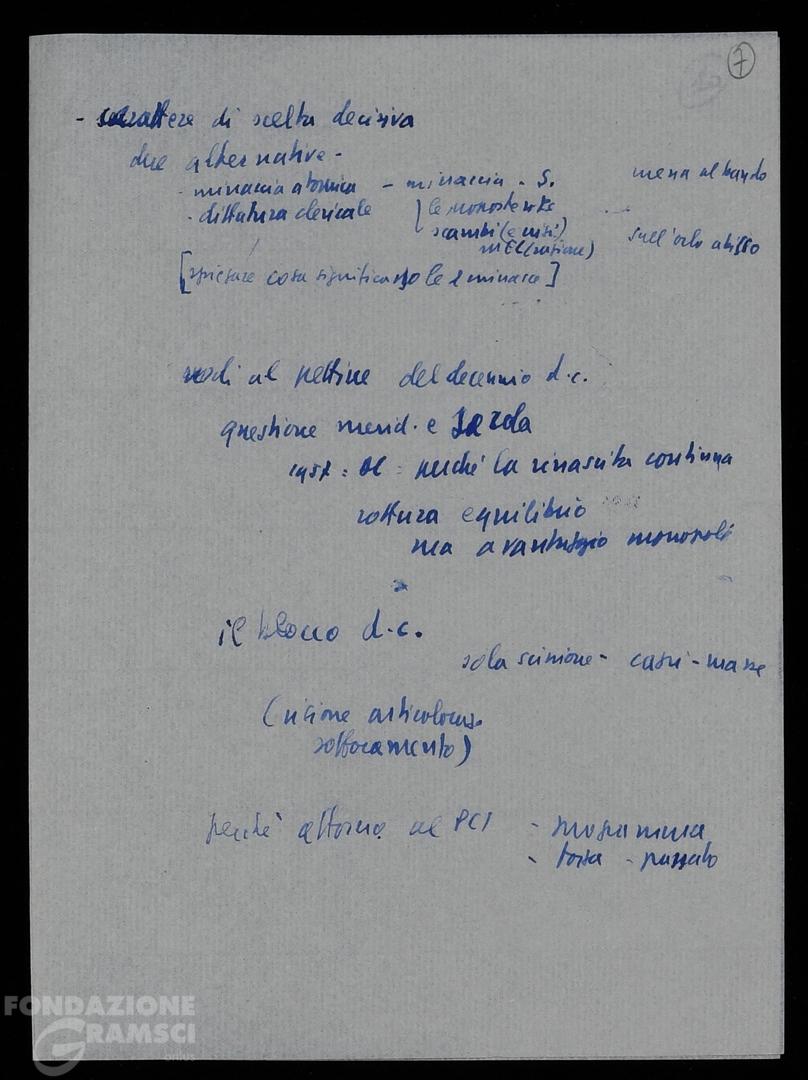 7
- carattere di scelta decisiva
due alternative -
- minaccia atomica - minaccia - S.
messa al bando
- dittatura clericale
le
scambi (e crisi)
MEC
sull'orlo abisso
[spiegare cosa significano le 2 minacce]
nodi al pettine del decennio d.c.
questione merid. e Sarda
perché la rinascita continua
rottura equilibrio
ma a vantaggio monopoli
il blocco d.c.
sola scissione -
(visione
soffocamento)
perché attorno al PCI - programma
- forza - passato
FONDAZIONE
GRAMSCI
onlus